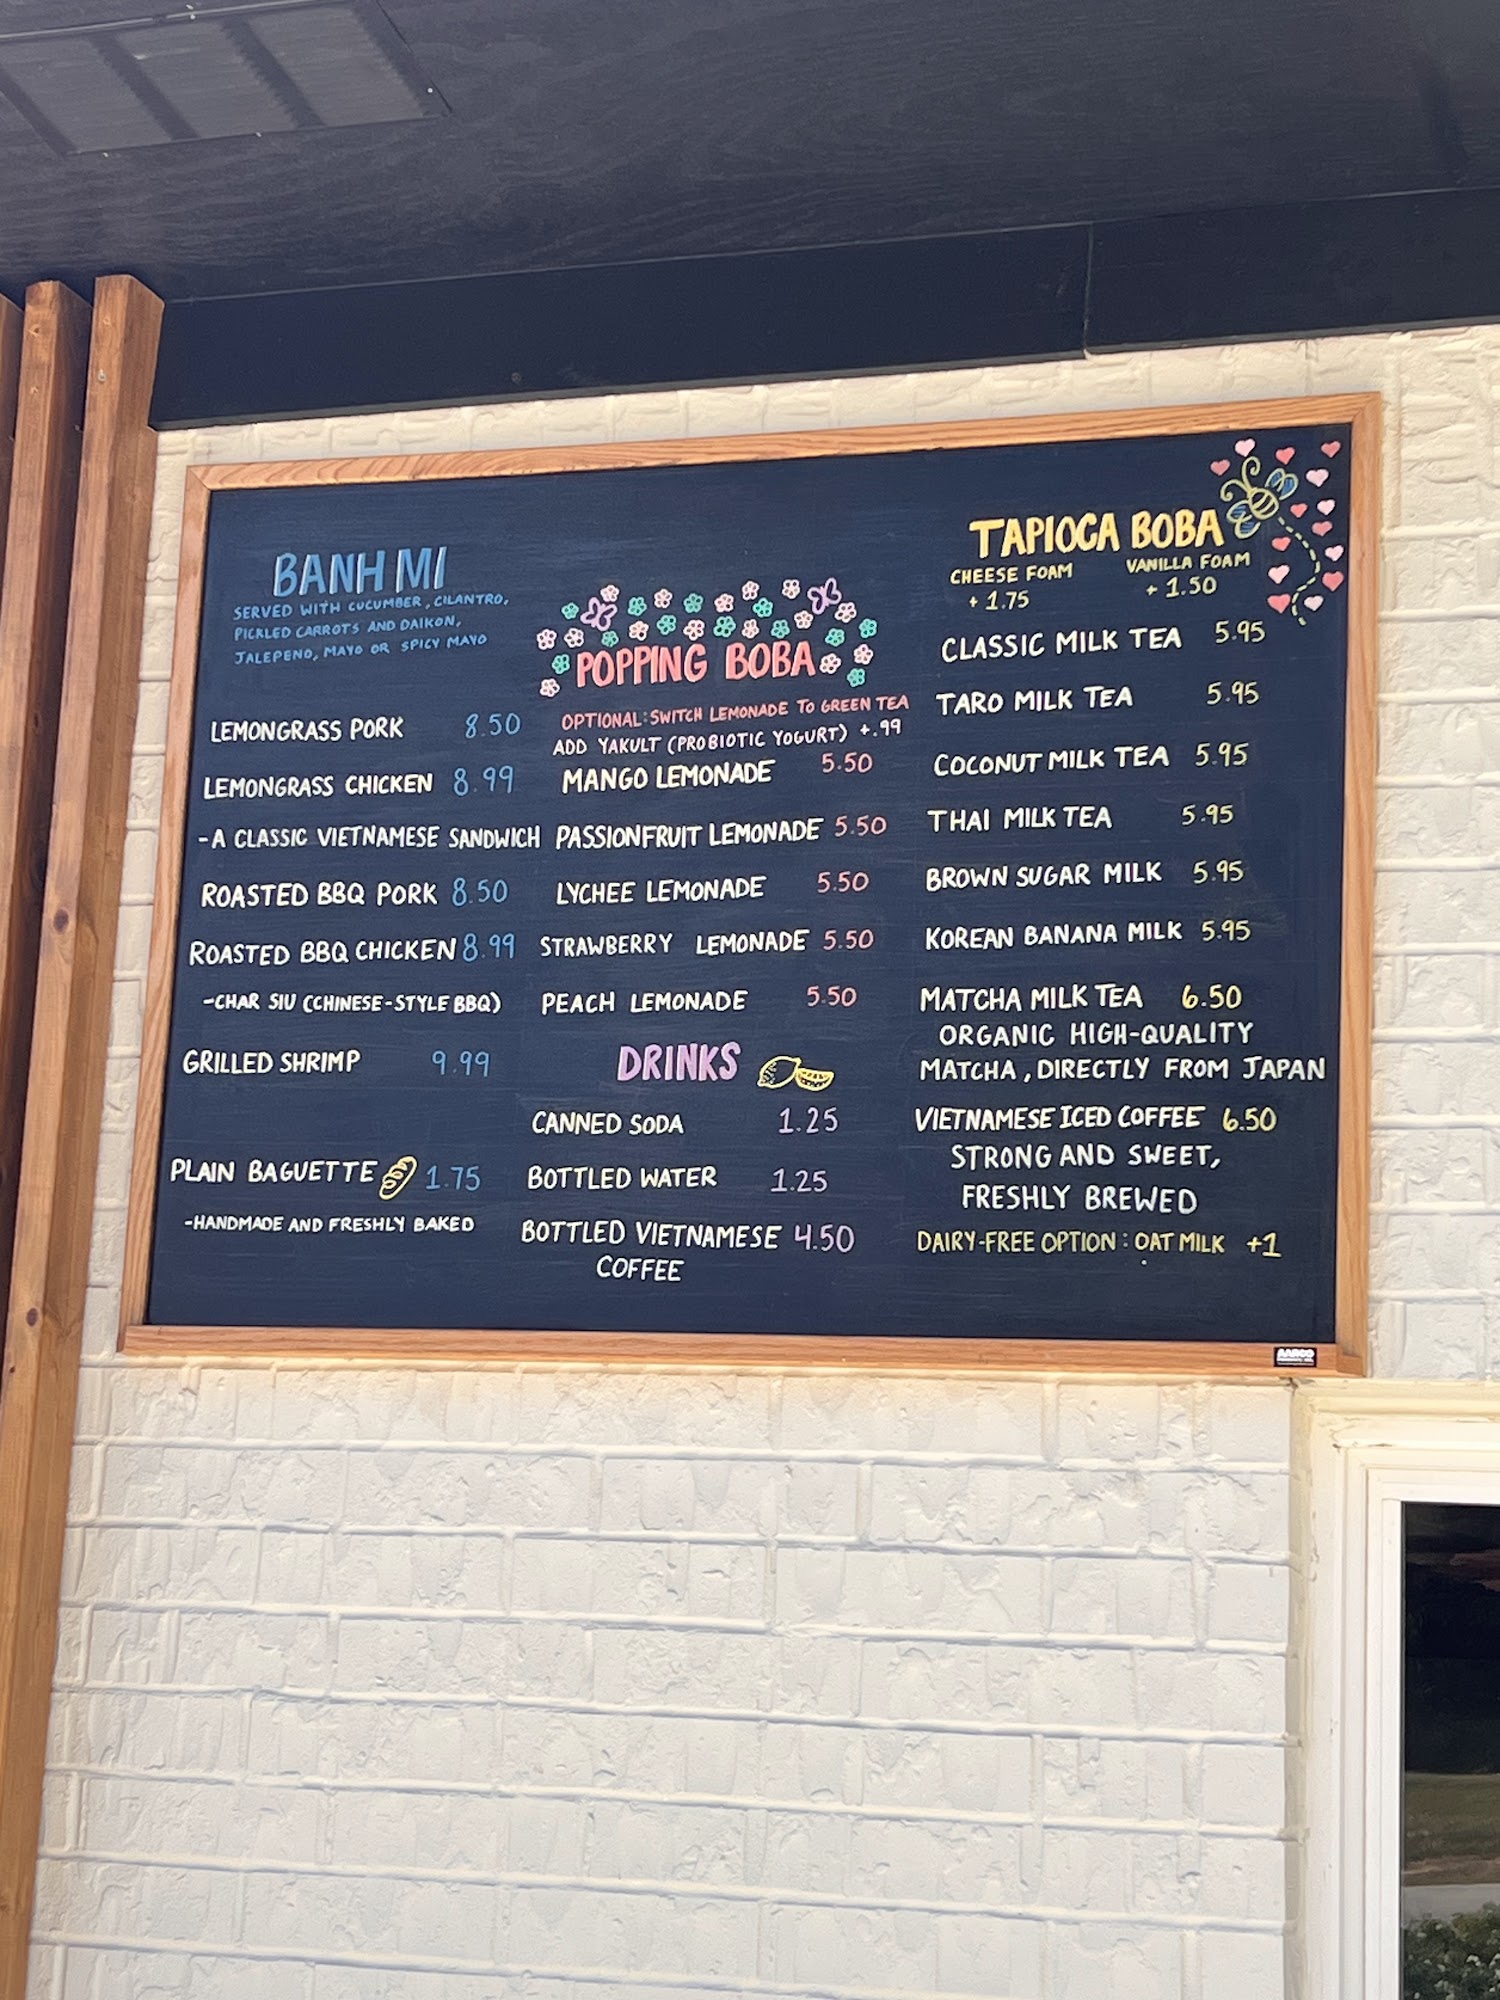 BANH MI
SERVED WITH CUCUMBER, CILANTRO,
PICKLED CARROTS AND DAIKON,
JALEPENO, MAYO OR SPICY MAYO
LEMONGRASS PORK 8.50
LEMONGRASS CHICKEN 8.99
-A CLASSIC VIETNAMESE SANDWICH
ROASTED BBQ PORK 8.50
ROASTED BBQ CHICKEN 8.99
-CHAR SIU (CHINESE-STYLE BBQ)
GRILLED SHRIMP 9.99
PLAIN BAGUETTE 1.75
-HANDMADE AND FRESHLY BAKED
POPPING BOBA
OPTIONAL: SWITCH LEMONADE TO GREEN TEA
ADD YAKULT (PROBIOTIC YOGURT) +.99
MANGO LEMONADE 5.50
PASSIONFRUIT LEMONADE 5.50
LYCHEE LEMONADE 5.50
STRAWBERRY LEMONADE 5.50
PEACH LEMONADE 5.50
DRINKS
CANNED SODA 1.25
BOTTLED WATER 1.25
BOTTLED VIETNAMESE 4.50
COFFEE
TAPIOCA BOBA
CHEESE FOAM VANILLA FOAM
+ 1.75 + 1.50
CLASSIC MILK TEA 5.95
TARO MILK TEA 5.95
COCONUT MILK TEA 5.95
THAI MILK TEA 5.95
BROWN SUGAR MILK 5.95
KOREAN BANANA MILK 5.95
MATCHA MILK TEA 6.50
ORGANIC HIGH-QUALITY
MATCHA, DIRECTLY FROM JAPAN
VIETNAMESE ICED COFFEE 6.50
STRONG AND SWEET,
FRESHLY BREWED
DAIRY-FREE OPTION: OAT MILK +1
AARCO